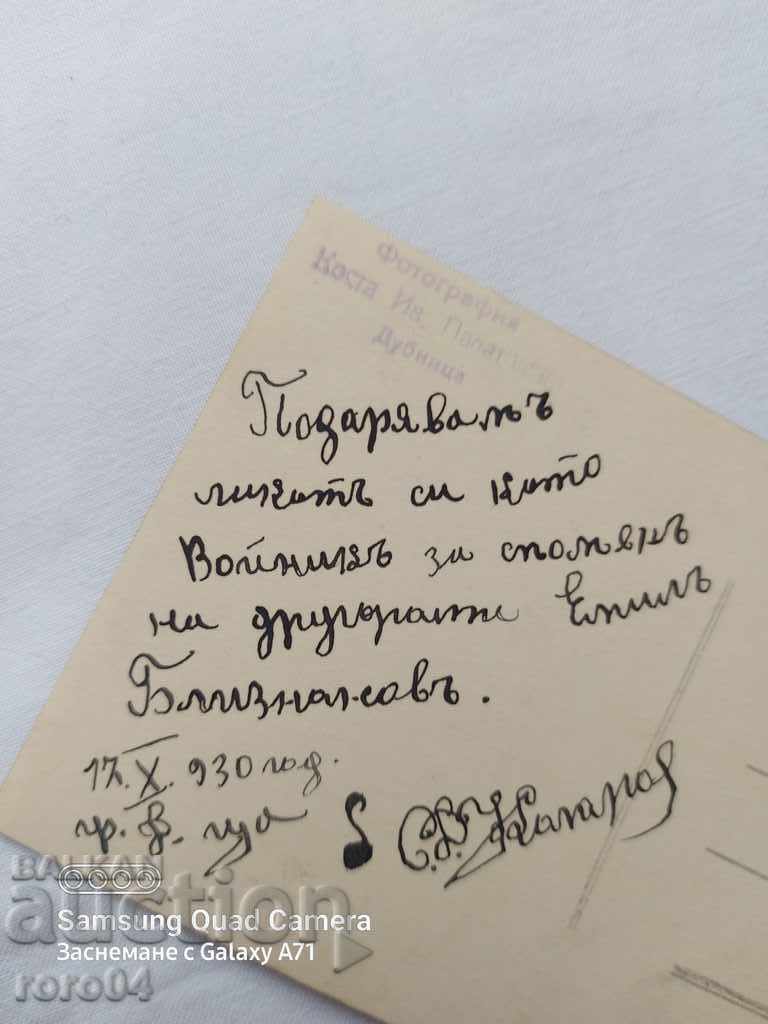 Фотография
Коста Ив.
Дубница
Подарявамъ
ликътъ си като
Войникъ за споменъ
на другаря ми Емилъ
Близнаковъ.
17.X.930 год.
гр. Д.-ца
BALKAN
auction
Samsung Quad Camera
Заснемане с Galaxy A71
roro04